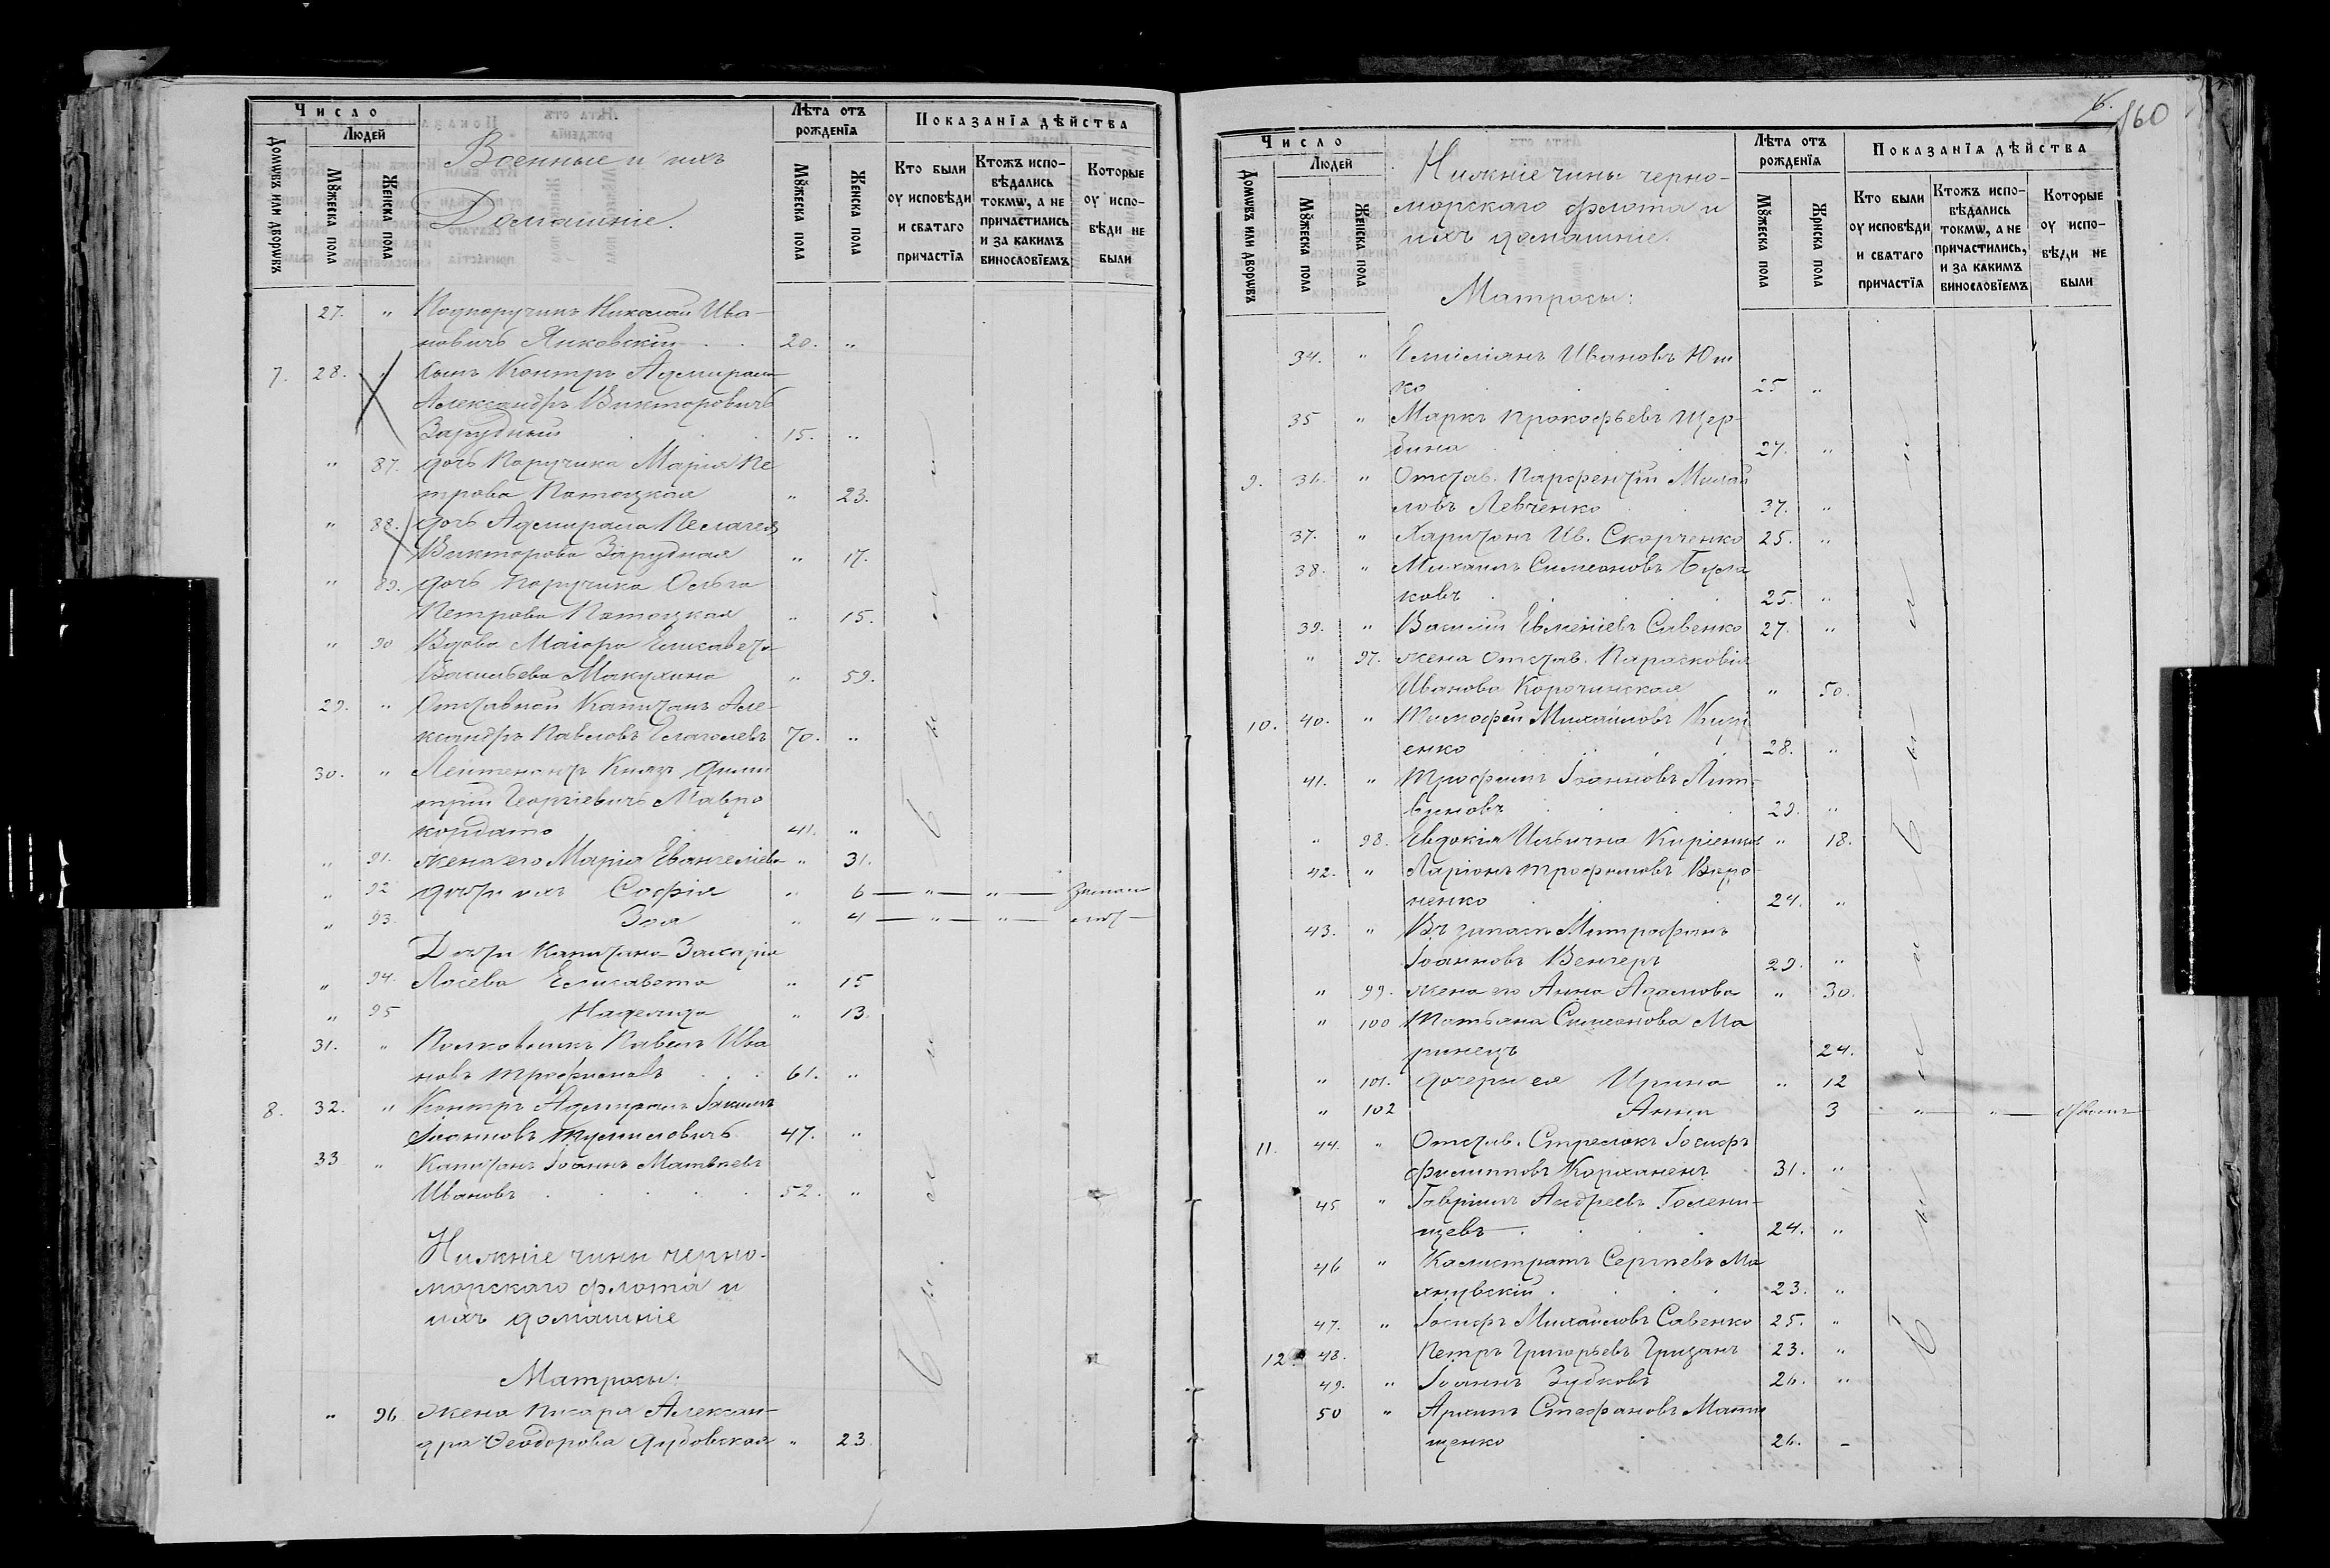 Число
Людей
Домѡвъ или дворѡвъ
Мꙋжеска пола
Женска пола
Военные и ихъ
Домашніе.
Лѣта отъ
рожденїя
Мꙋжеска пола
Женска пола
Показанїя дѣйства
Кто были
оу исповѣди
и святаго
причастїя
Ктожъ испо-
вѣдались
токмѡ, а не
причастились
и за какимъ
винословїемъ
Которые
оу испо-
вѣди не
были
27. " Подпоручикъ Николай Ива-
новичъ Янковскій 20. "
7. 28. " сынъ Контръ Адмирала
Александръ Викторовичъ
Зарудный 15. "
" 87. дочь Поручика Марія Пе
трова Потоцкая " 23.
" 88. дочь Адмирала Пелагея
Викторова Зарудная " 17.
" 89. дочь Поручика Ольга
Петрова Потоцкая " 15.
" 90 Вдова Маіора Елисавета
Васильева Макухина " 59.
29. " Отставной Капитанъ Але-
ксандръ Павловъ Глаголевъ 70. "
30. " Лейтенантъ Князь Дими
трій Георгіевичъ Мавро
кордато 41. "
" 91. жена его Марія Евангеліева " 31.
" 92 дѣти ихъ Софія " 6 — " — " —
" 93. Зоя " 4 — " — " —
Дѣти Капитана Захарія
" 94. Лосева Елисавета " 15
" 95 Надежда " 13.
31. " Полковникъ Павелъ Ива
новъ Трофимовъ 61. "
8. 32. " Контръ Адмиралъ Іакимъ
Іоанновъ 47. "
33 " Капитанъ Іоаннъ Матвѣевъ
Ивановъ 52. "
Нижніе чины черно-
морскаго флота и
ихъ домашніе
Матросы:
" 96. жена писаря Алексан-
дра Ѳеодорова Дудовская " 23.
6.
160
Число
Людей
Домѡвъ или дворѡвъ
Мꙋжеска пола
Женска пола
Нижніе чины черно-
морскаго флота и
ихъ домашніе.
Матросы:
Лѣта отъ
рожденїя
Мꙋжеска пола
Женска пола
Показанїя дѣйства
Кто были
оу исповѣди
и святаго
причастїя
Ктожъ испо-
вѣдались
токмѡ, а не
причастились,
и за какимъ
винословїемъ
Которые
оу испо-
вѣди не
были
34. " Емиліянъ Ивановъ Юш
ко 25 "
35 " Маркъ Прокофьевъ Щер-
бина 27. "
9. 36. " Отстав. Парфентій Михай
ловъ Левченко 37. "
37. " Харитонъ Ив. Скорченко 25. "
38. " Михаилъ Симеоновъ Бурла
ковъ 25. "
39. " Василій Евменіевъ Савенко 27. "
" 97. жена отстав. Парасковія
Иванова Корочинская " 50.
10. 40. " Тимофей Михайловъ Кирі
енко 28. "
41. " Трофимъ Іоанновъ Лит-
виновъ 29. "
" 98. Евдокія Ильична Киріенко " 18.
42. " Ларіонъ Трофимовъ Воро-
ненко 24. "
43. " Въ запасѣ Митрофанъ
Іоанновъ Венгеръ 29. "
" 99. жена его Анна Адамова " 30.
" 100 Татьяна Симеонова Ма
ринецъ 24.
" 101. дочери ея Ирина " 12
" 102 Анна 3 — " — " —
11. 44. " Отстав. Стрелокъ Іосифъ
Филипповъ Корханенъ 31. "
45 " Гавріилъ Андреевъ Голени-
щевъ 24. "
46 " Калистратъ Сергѣевъ Ма
хнувскій 23. "
47. " Іосифъ Михайловъ Савенко 25. "
12. 48. Петръ Григорьевъ Гризанъ 23. "
49. " Іоаннъ Зубковъ 26. "
50 " Архипъ Стефановъ
щенко 26. -